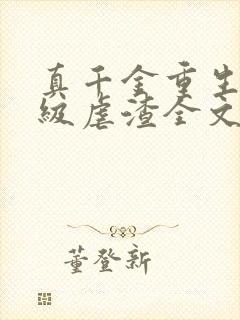 真千金重生
级虐渣全文
董登新